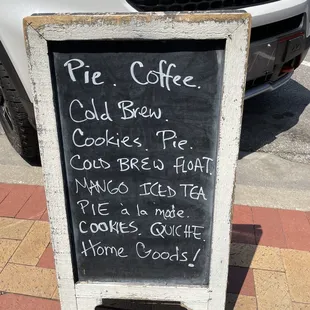 Pie. Coffee.
Cold Brew.
Cookies. Pie.
COLD BREW FLOAT.
MANGO ICED TEA
PIE à la mode.
COOKIES. QUICHE.
Home Goods!